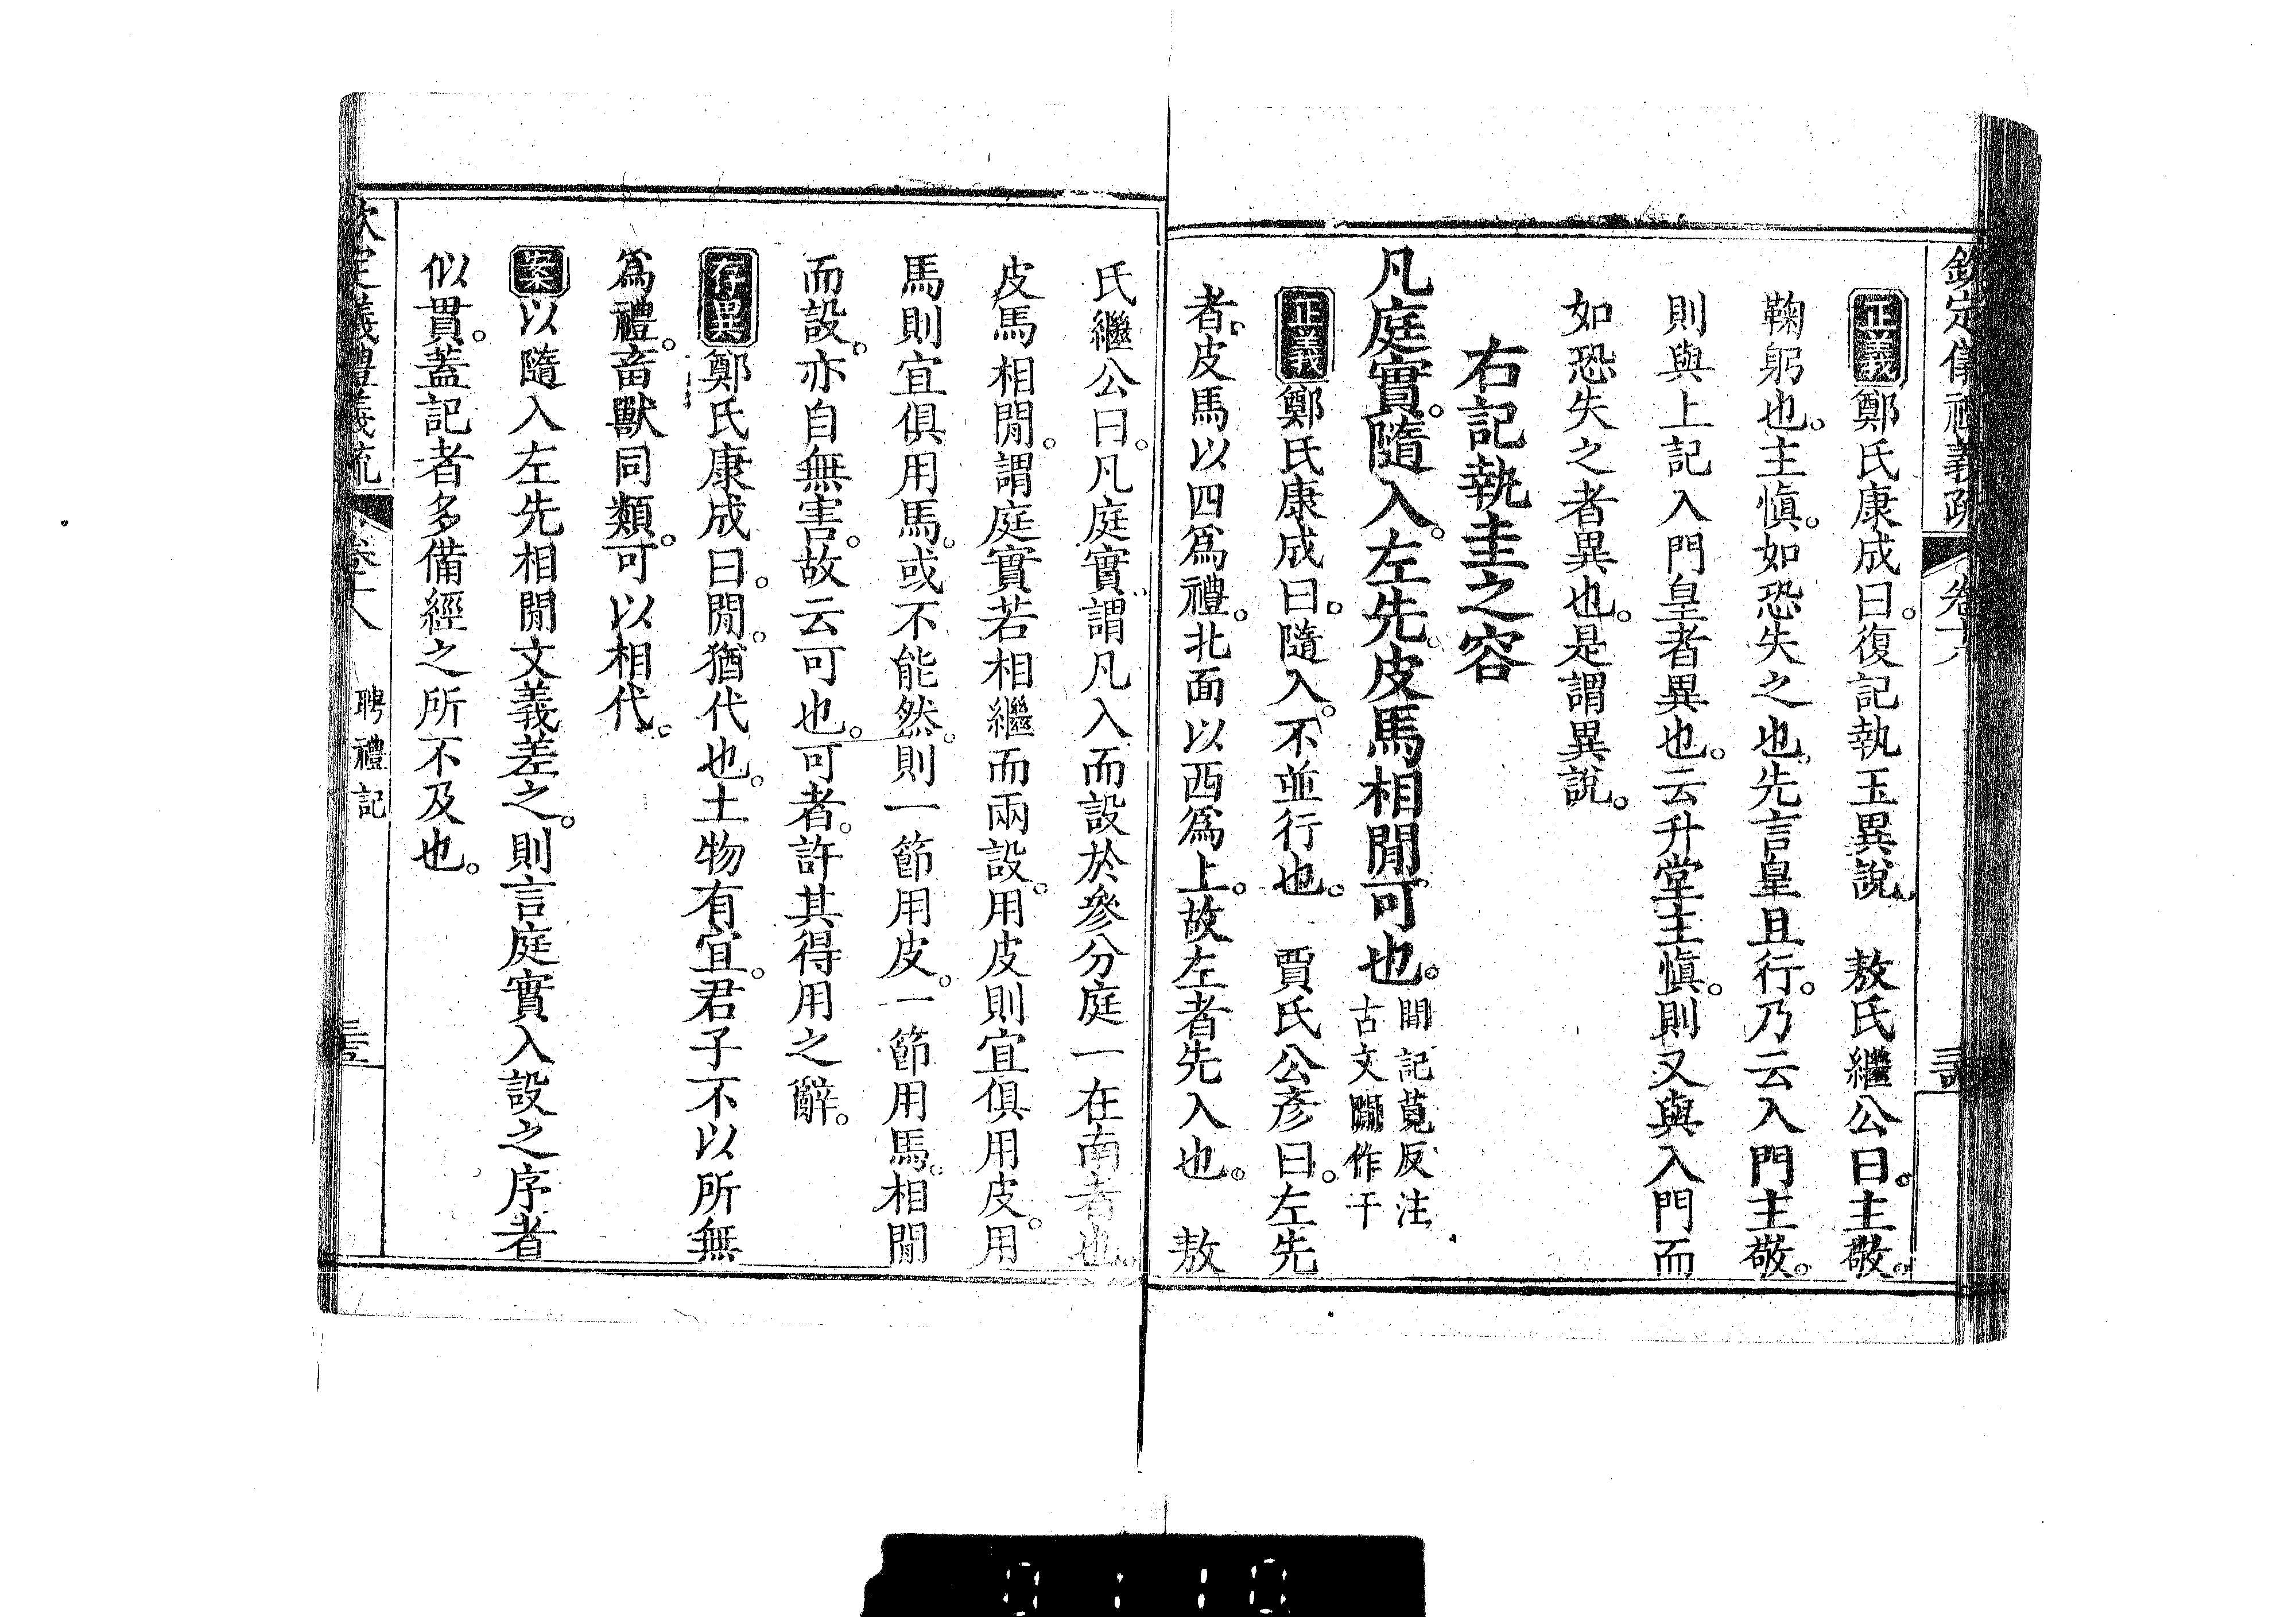 欽定儀禮義疏 卷十八
正義鄭氏康成曰。復記執玉異說。 敖氏繼公曰。主敬。
鞠躬也。主愼。如恐失之也。先言皇且行。乃云入門主敬。
則與上記入門皇者異也。云升堂主愼。則又與入門而
如恐失之者異也。是謂異說。
右記執圭之容
凡庭實。隨入。左先。皮馬相閒可也。閒記莧反注
古文閒作干
正義鄭氏康成曰。隨入。不並行也。 賈氏公彥曰。左先
者。皮馬以四爲禮。北面以西爲上。故左者先入也。 敖
氏繼公曰。凡庭實。謂凡入而設於參分庭一在南者也。
皮馬相閒。謂庭實若相繼而兩設。用皮則宜俱用皮。用
馬則宜俱用馬。或不能然。則一節用皮。一節用馬。相閒
而設。亦自無害。故云可也。可者。許其得用之辭。
存異鄭氏康成曰。閒。猶代也。土物有宜。君子不以所無
爲禮。畜獸同類。可以相代。
案以隨入左先相閒文義差之。則言庭實入設之序者
似貫。蓋記者多備經之所不及也。
欽定儀禮義疏 卷十八 聘禮記
0110